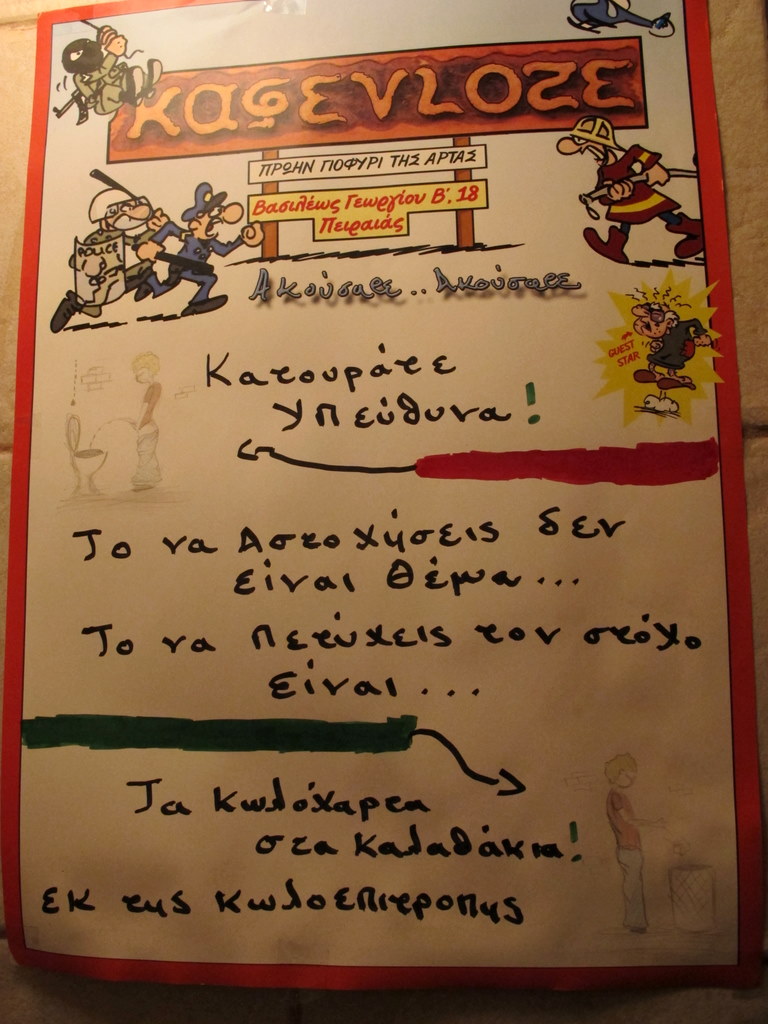 ΚΑφΕΝLΟΖΕ
ΠΡΩΗΝ ΓΙΟΦΥΡΙ ΤΗΣ ΑΡΤΑΣ
Βασιλέως Γεωργίου Β', 18
Πειραιάς
Ακούσατε .. Ακούσατε
POLICE
GUEST
STAR
Κατουράτε
Υπεύθυνα!
Το να Αστοχήσεις δεν
είναι θέμα...
Το να Πετύχεις τον στόχο
είναι...
Τα Κωλόχαρτα
στα Καλαθάκια!
ΕΚ της Κωλοεπιτροπής